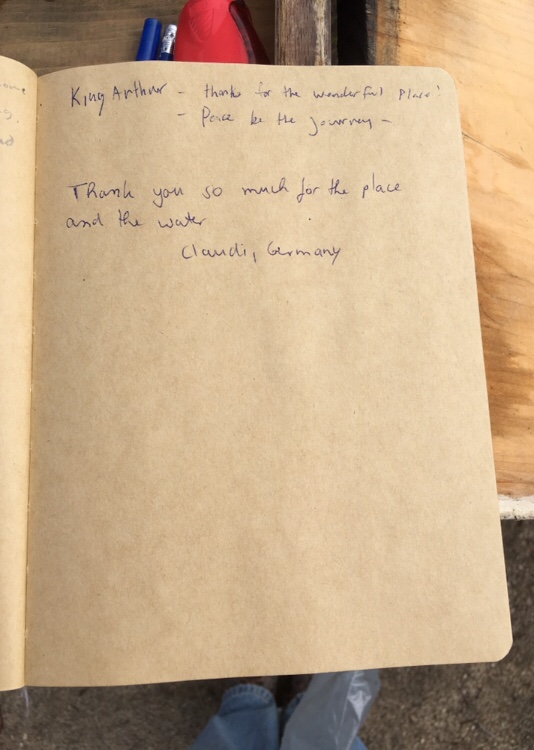 King Arthur - thanks for the wonderful place!
- Peace be the journey -
Thank you so much for the place
and the water
Claudi, Germany